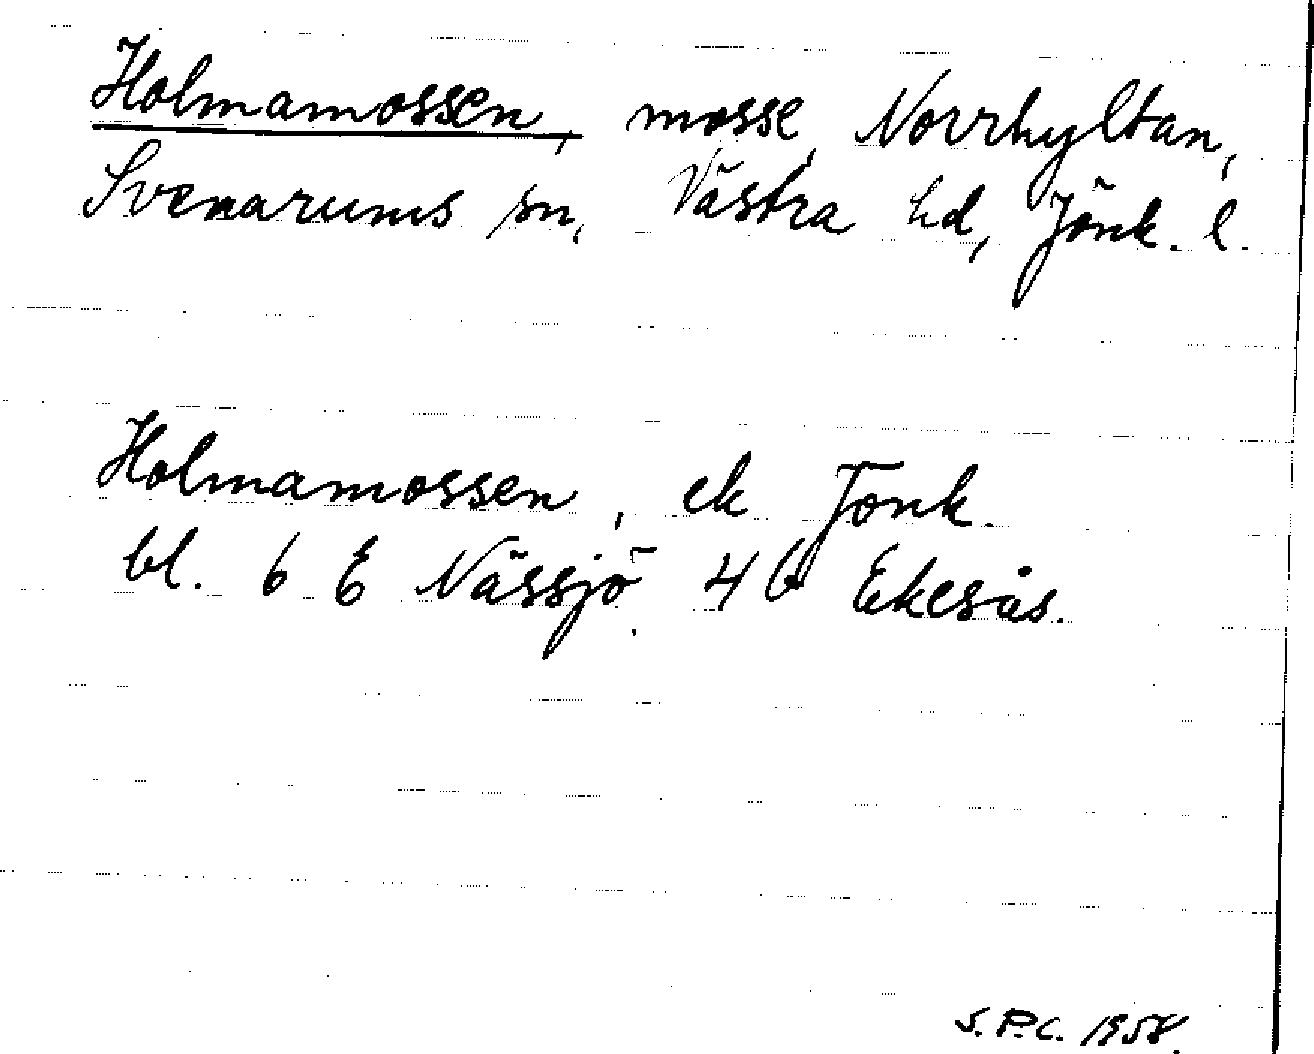 Holmamossen, mosse, Norrhyltan,
Svenarums sn, Västra hd, Jönk. l.
Holmamossen, ek Jönk.
bl. 6 E Nässjö 4 b Ekesås.
S.P.C. 1958.